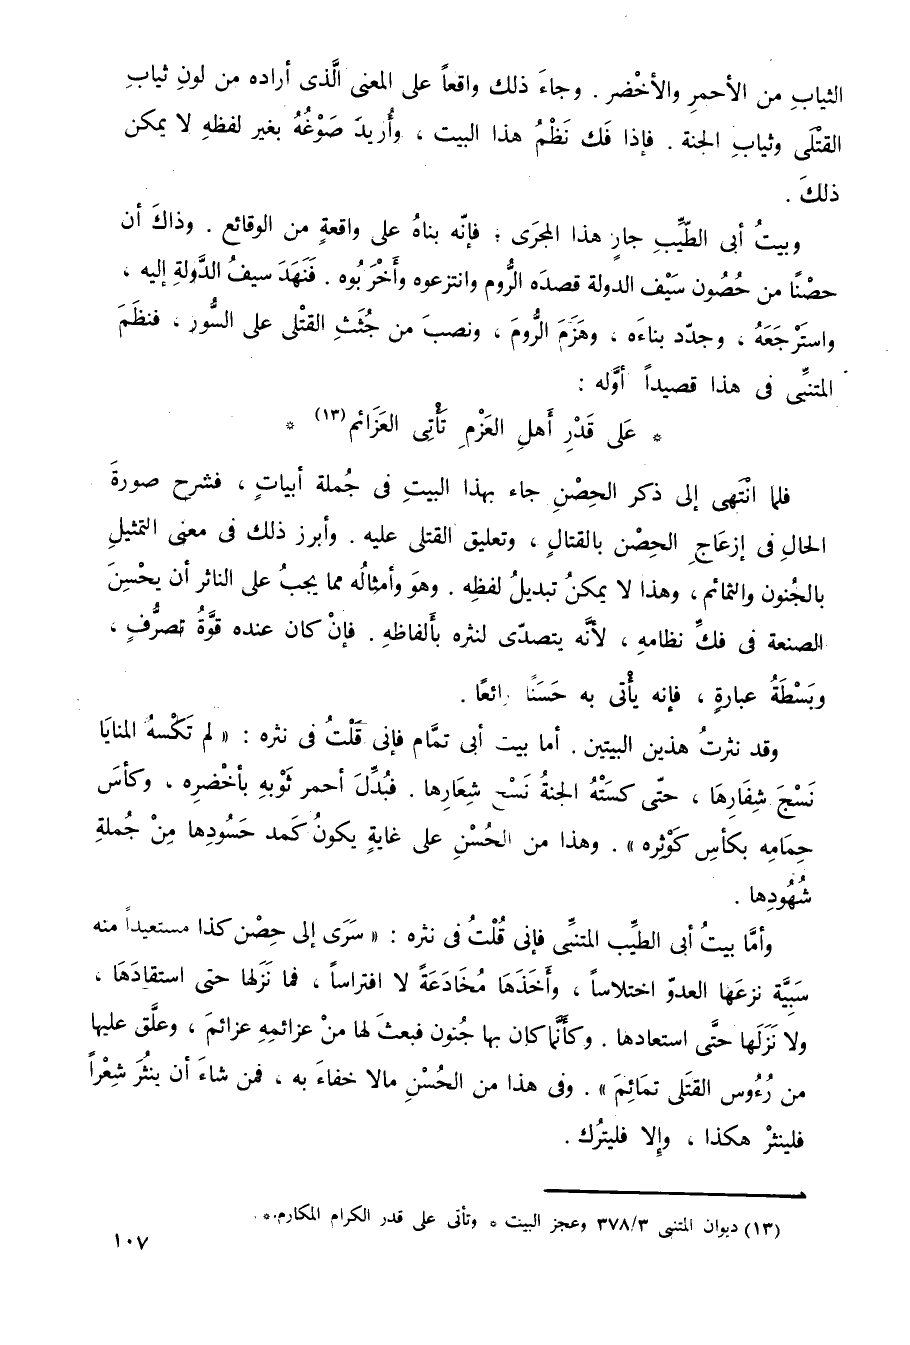 الثيابِ من الأحمرِ والأخْضر . وجاءَ ذلك واقعاً على المعنى الَّذى أراده من لونِ ثيابِ
القتْلَى وثيابِ الجنة . فإذا فَك نَظْمُ هذا البيت ، وأُريدَ صَوْغُهُ بغير لفظهِ لا يمكن
ذلكَ .
وبيتُ أبى الطَّيِّبِ جارٍ هذا المجرَى ؛ فإنّه بناهُ على واقعةٍ من الوقائع . وذاكَ أن
حصْنًا من حُصُون سَيْف الدولة قصدَه الرُّوم وانتزعوه وأَخْرَبُوه . فَنَهَدَ سيفُ الدَّولةِ إليه ،
واستَرْجَعَهُ ، وجدّد بناءَه ، وهَزَمَ الرُّومَ ، ونصبَ من جُثَثِ القتْلى على السُّور ، فنظَمَ
المتنبِّى فى هذا قصيداً أوَّله :
* عَلى قَدْرِ أهلِ العَزْمِ تَأْتِى العَزَائم(١٣) *
فلما انْتَهى إلى ذكر الحِصْنِ جاء بهذا البيتِ فى جُملة أبياتٍ ، فشرح صورةَ
الحالِ فى إزعَاجِ الحِصْن بالقتالِ ، وتعليق القتلى عليه . وأبرز ذلك فى معنى التمثيلِ
بالجُنون والتمائم ، وهذا لا يمكنُ تبديلُ لفظِه . وهوَ وأمثالُه مما يجبُ على الناثر أن يحْسِنَ
الصنعة فى فكِّ نظامهِ ، لأنَّه يتصدّى لنثره بأَلفاظهِ . فإنْ كان عنده قوَّةُ تصرُّفٍ ،
وبَسْطَةُ عبارةٍ ، فإنه يأْتى به حَسَنًا رائعًا .
وقد نثرتُ هذين البيتين . أما بيت أبى تمَّام فإنى قُلْتُ فى نثره : « لم تَكْسهُ المنايَا
نَسْجَ شِفَارِهَا ، حتّى كسَتْهُ الجنةُ نَسْجَ شِعَارِها . فبُدِّلَ أحمر ثَوْبهِ بأخْضره ، وكأسَ
حِمَامِه بكأسِ كَوْثِره » . وهذا من الحُسْنِ على غايةٍ يكونُ كمد حَسُودِها مِنْ جُملةِ
شُهُودِها .
وأمَّا بيتُ أبى الطيِّب المتنبِّى فإنى قُلْتُ فى نثره : « سَرَى إلى حِصْن كذا مستعيداً منه
سَبِيَّة نزعَها العدوّ اختلاساً ، وأَخَذَهَا مُخَادَعَةً لا افتراساً ، فما نَزَلها حتى استقادَهَا ،
ولا نَزَلَها حتَّى استعادها . وكأَنَّما كان بها جُنون فبعثَ لها منْ عزائمهِ عزائمَ ، وعلَّق عليها
من رُءُوس القتَلى تمَائِمَ » . وفى هذا من الحُسْنِ مالا خفاءَ به ، فمن شاءَ أن ينثُرَ شِعْراً
فلينثرْ هكذا ، وإلا فليترُك .
(١٣) ديوان المتنبى ٣٧٨/٣ وعجز البيت * وتأتى على قدر الكرام المكارم.*
١٠٧